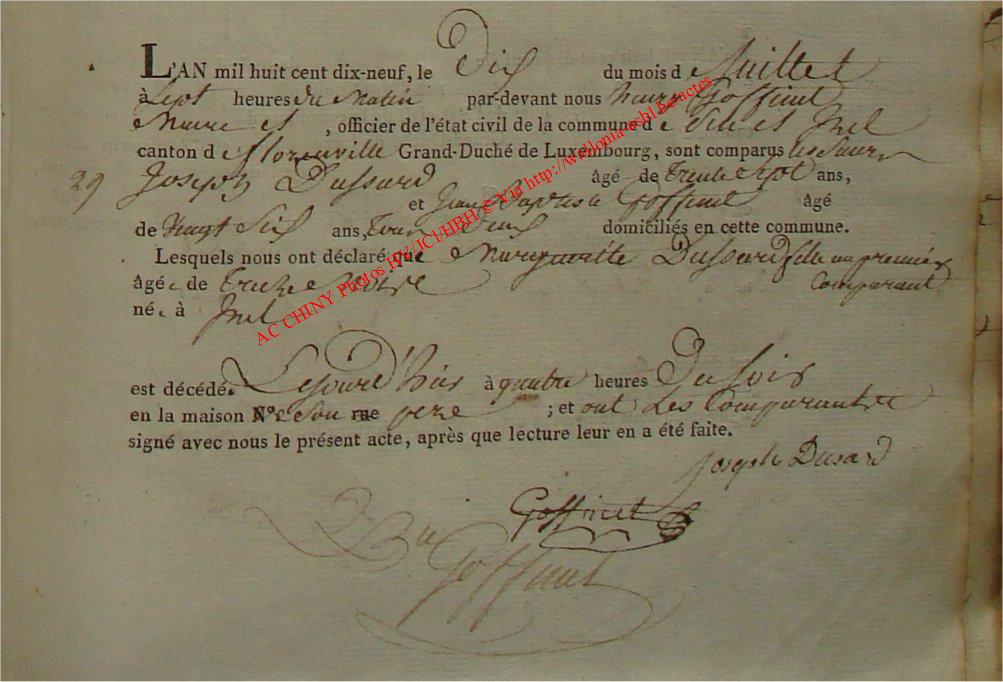 L'AN mil huit cent dix-neuf, le Dix du mois de Juillet
à Sept heures du Matin par-devant nous henry Goffinet
Maire et, officier de l'état civil de la commune de et Jzel
canton de florenville Grand-Duché de Luxembourg, sont comparus les Sieurs
29 Joseph Dussard âgé de Trente Sept ans,
et Jean Baptiste Goffinet âgé
de Vingt Six ans, Tous Deux domiciliés en cette commune.
Lesquels nous ont déclaré que Marguerite Dussard fille au premier
Comparant
âgée de Treize Mois
née à Jzel
est décédée Le jour d'hier à quatre heures Du Soir
en la maison N° de son rue pere ; et ont Les Comparant
signé avec nous le présent acte, après que lecture leur en a été faite.
Joseph Dusard
Goffinet
Goffinet
AC CHINY Photos HV/JCl/HBH © Via http://wallonia-asbl.be/actes